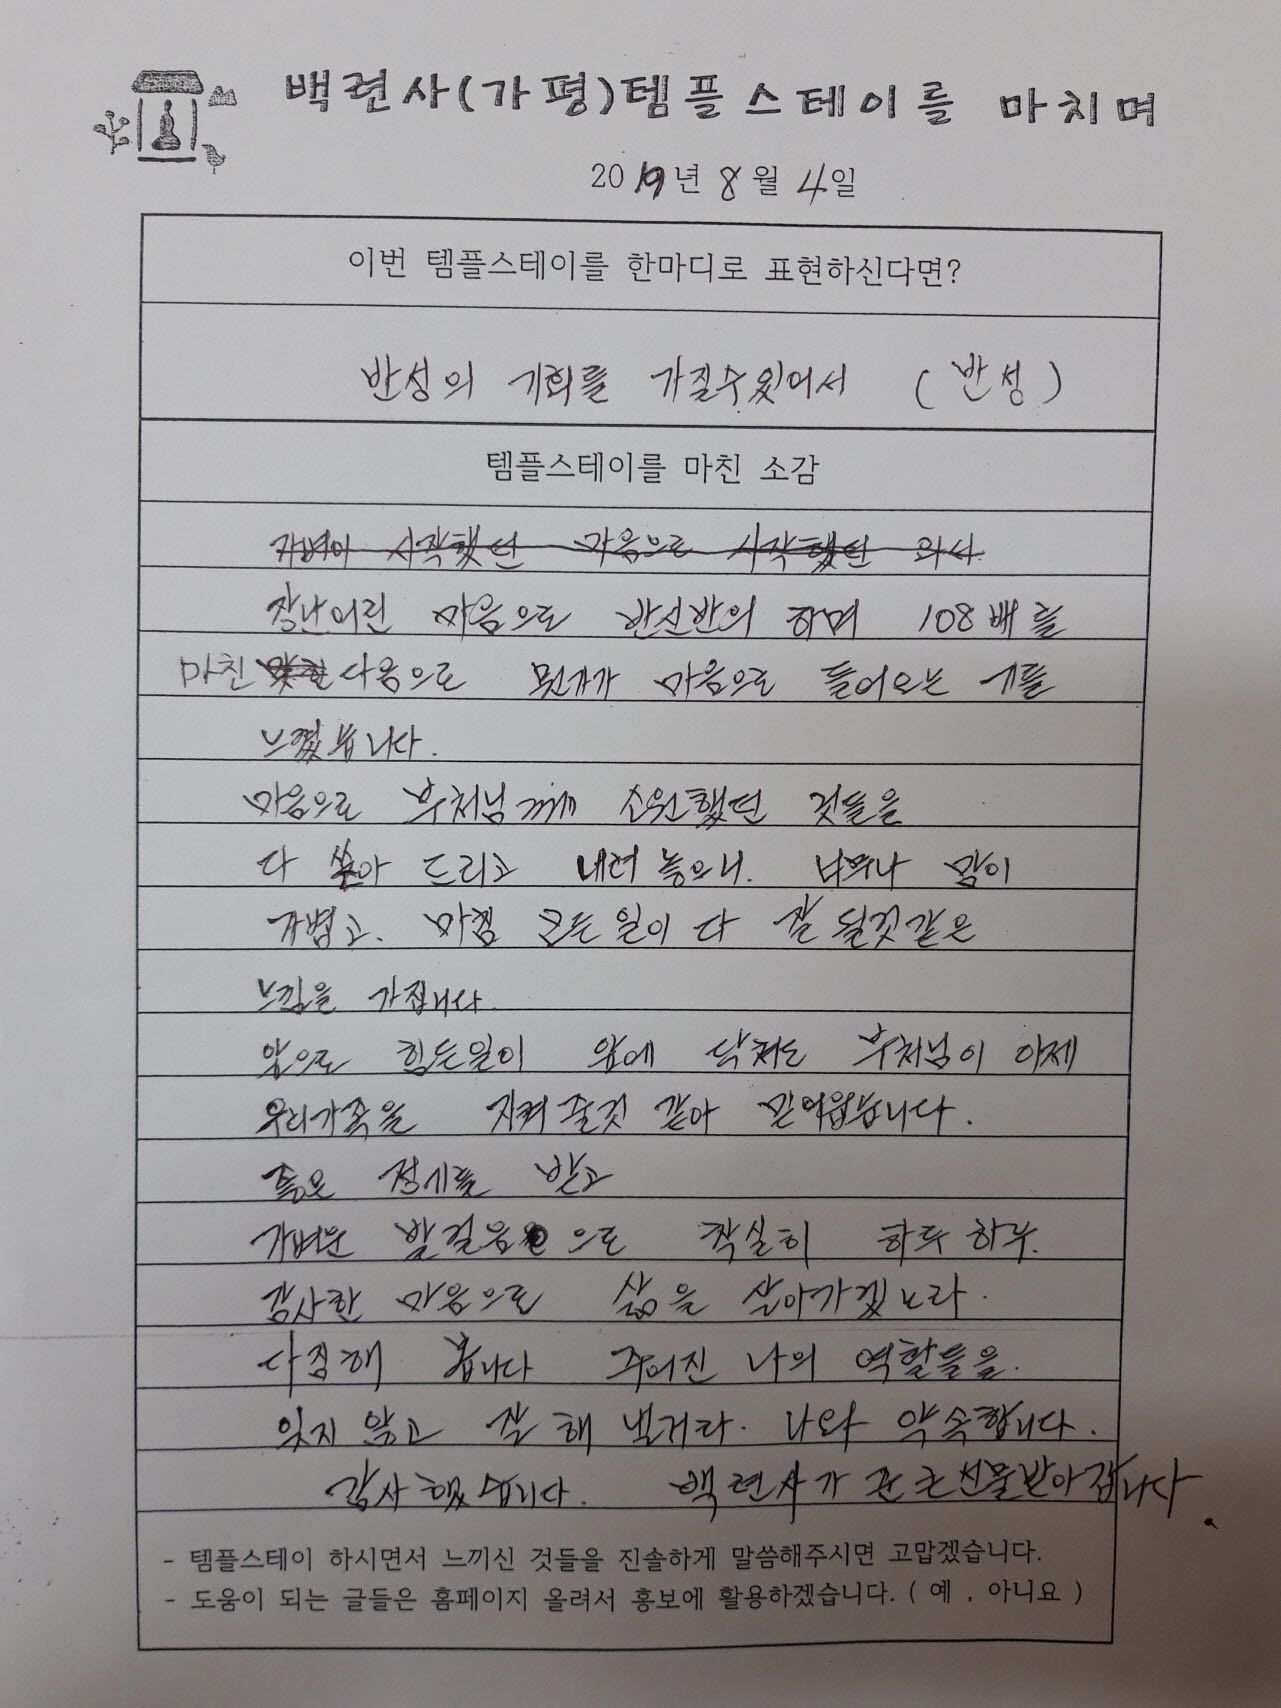 백련사(가평)템플스테이를 마치며
2019년 8월 4일
이번 템플스테이를 한마디로 표현하신다면?
반성의 기회를 가질수있어서 (반성)
템플스테이를 마친 소감
가벼이 시작했던 마음으로 시작했던
장난어린 마음으로 반신반의 하며 108배를
마친 다음으로 뭔가가 마음으로 들어오는 기를
느꼈습니다.
마음으로 부처님께 소원했던 것들을
다 쏟아 드리고 내려 놓으니. 너무나 맘이
가볍고. 마침 모든일이 다 잘 될것같은
느낌을 가집니다.
앞으로 힘든일이 앞에 닥쳐도 부처님이 이제
우리가족을 지켜 줄것 같아 믿어봅니다.
좋은 정기를 받고
가벼운 발걸음으로 착실히 하루하루.
감사한 마음으로 삶을 살아가겠노라.
다짐해 봅니다 주어진 나의 역할들을.
잊지 않고 잘 해 낼거라. 나와 약속합니다.
감사했습니다. 백련사가 큰 선물받아갑니다.
- 템플스테이 하시면서 느끼신 것들을 진솔하게 말씀해주시면 고맙겠습니다.
- 도움이 되는 글들은 홈페이지 올려서 홍보에 활용하겠습니다. ( 예 , 아니요 )